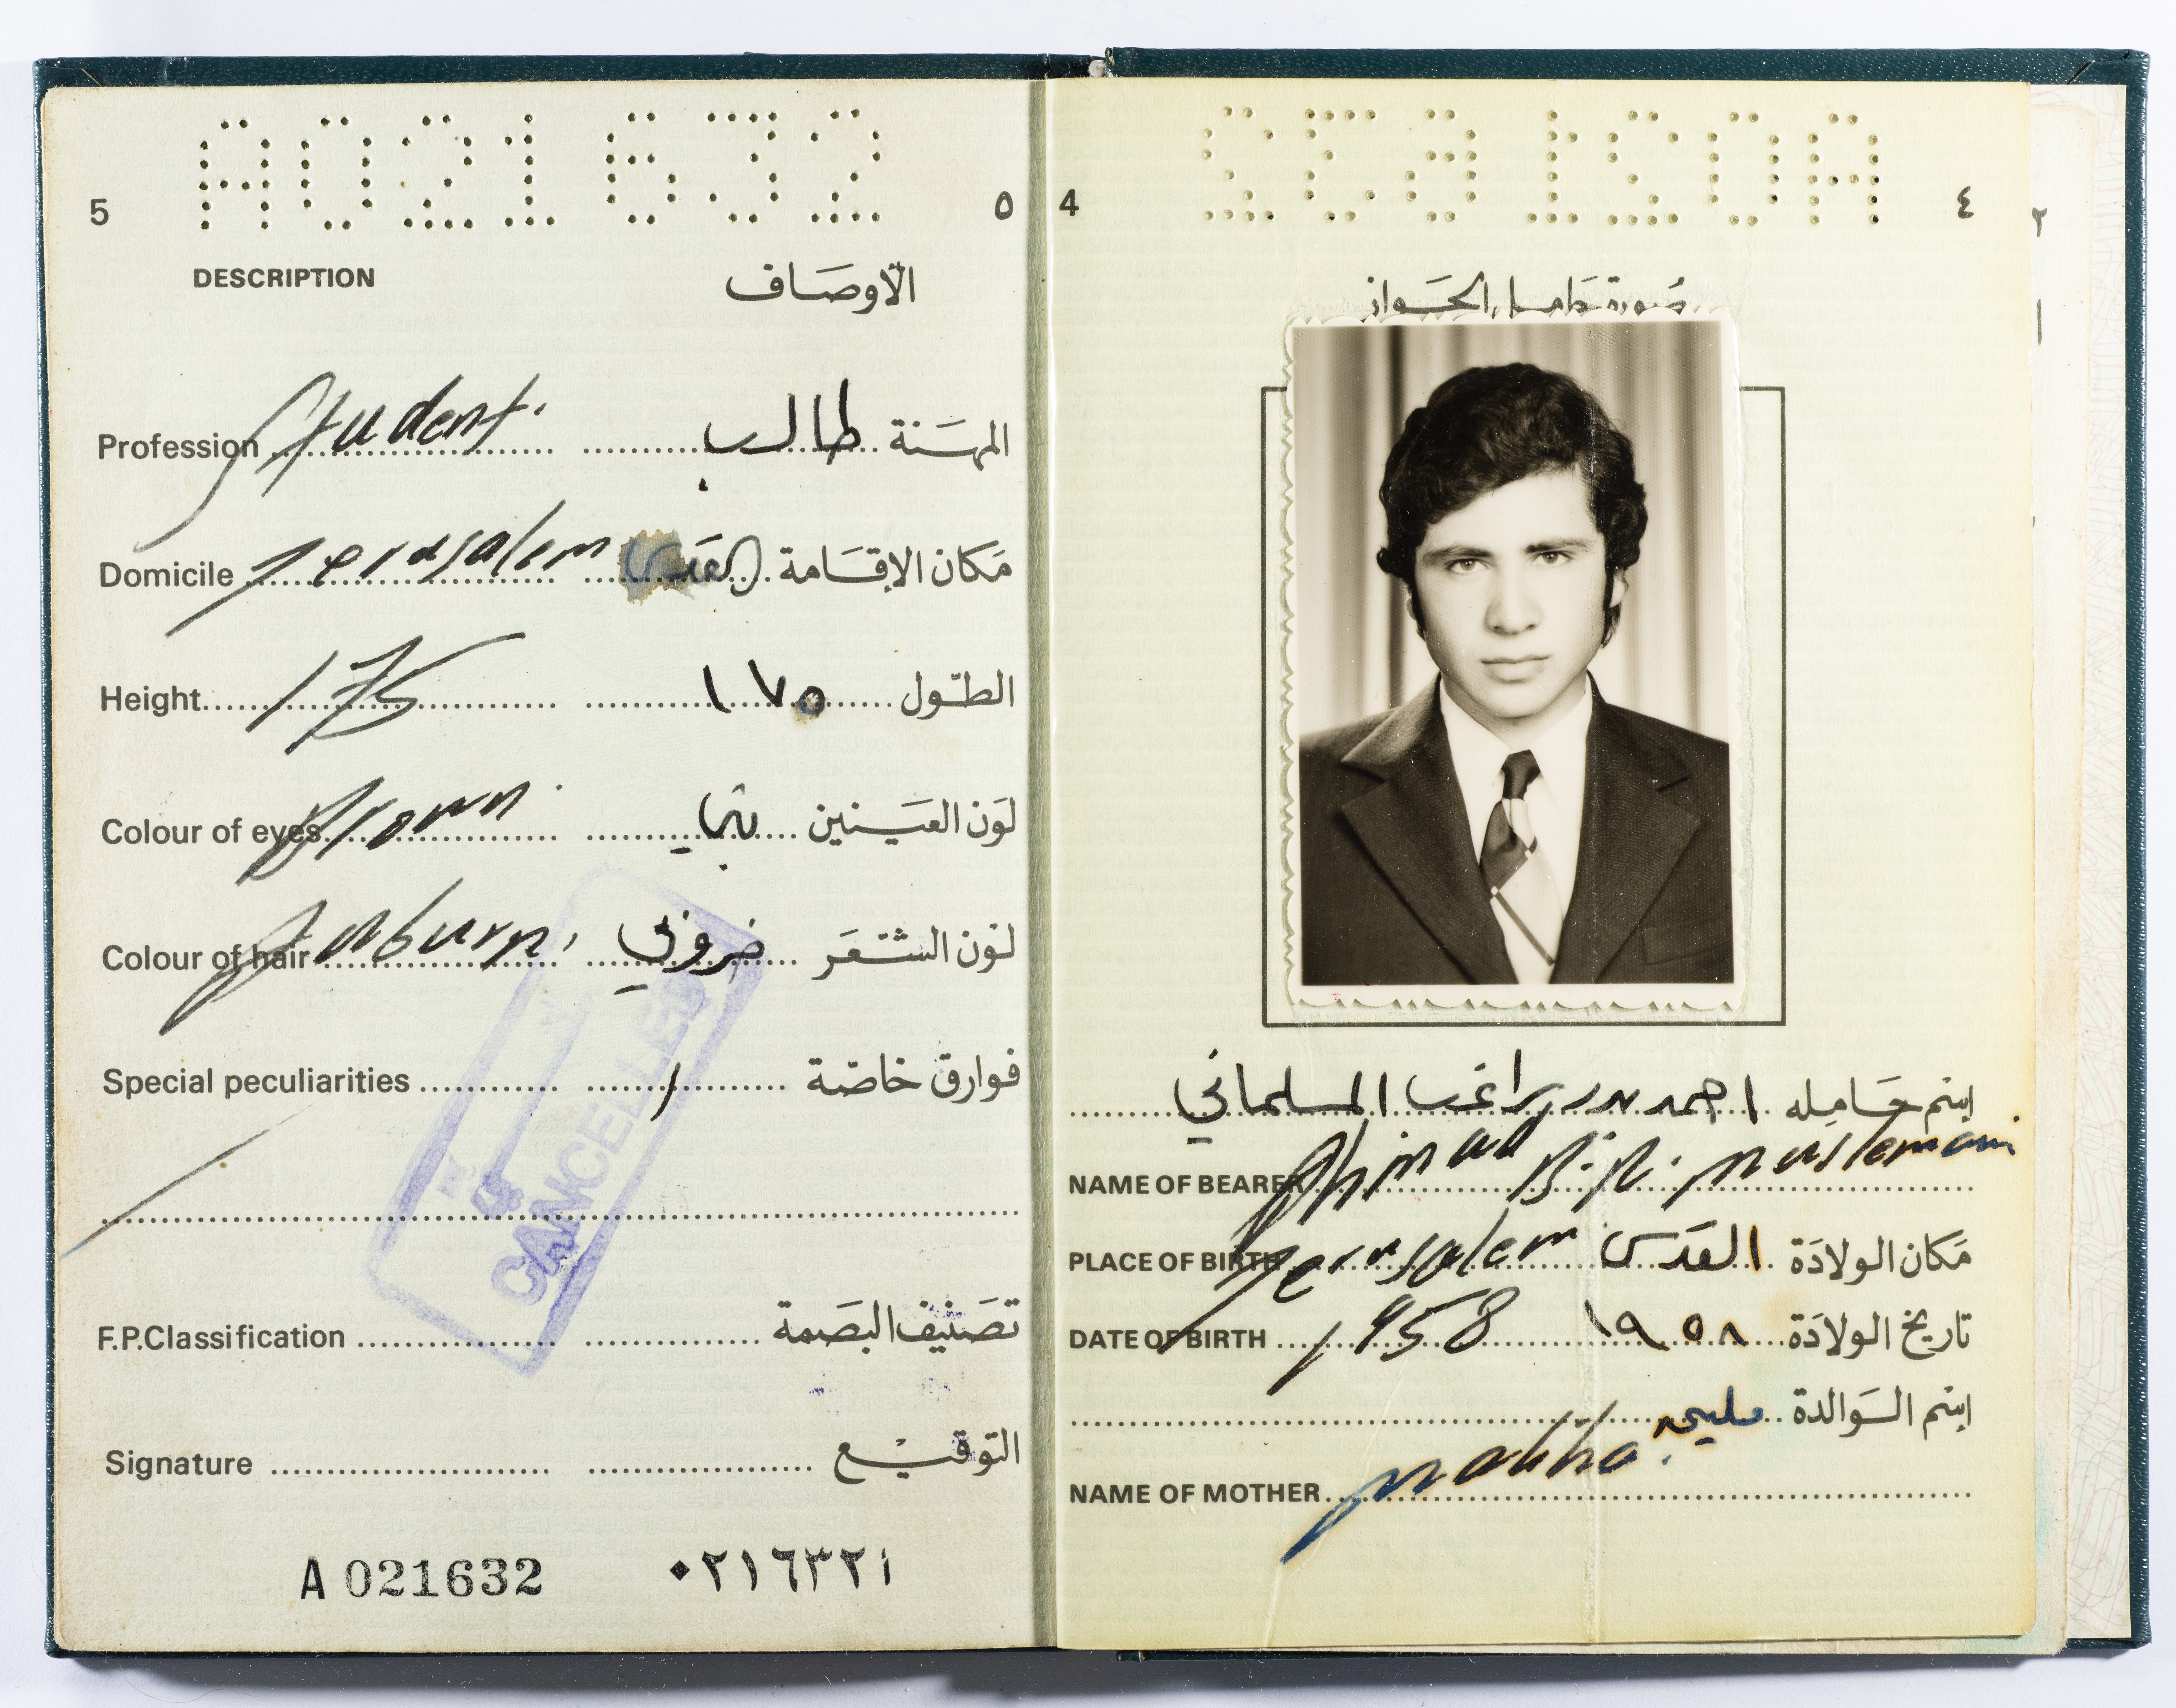 A021632
5 ٥
DESCRIPTION الأوصاف
Profession Student. طالب المهنة
Domicile Jerusalem القدس مكان الإقامة
Height 175 ١٧٥ الطول
Colour of eyes Brown. بني لون العينين
Colour of hair Auburn. لون الشعر
Special peculiarities / فوارق خاصة
F.P.Classification تصنيف البصمة
Signature التوقيع
A 021632 ٠٢١٦٣٢ أ
CANCELLED
A021632
4 ٤
صورة حامل الجواز
إسم حامله احمد بدر راغب المسلماني
NAME OF BEARER Ahmad B.R. Muslemani
PLACE OF BIRTH Jerusalem القدس مكان الولادة
DATE OF BIRTH 1958 ١٩٥٨ تاريخ الولادة
إسم الوالدة مليحه
NAME OF MOTHER Maliha.